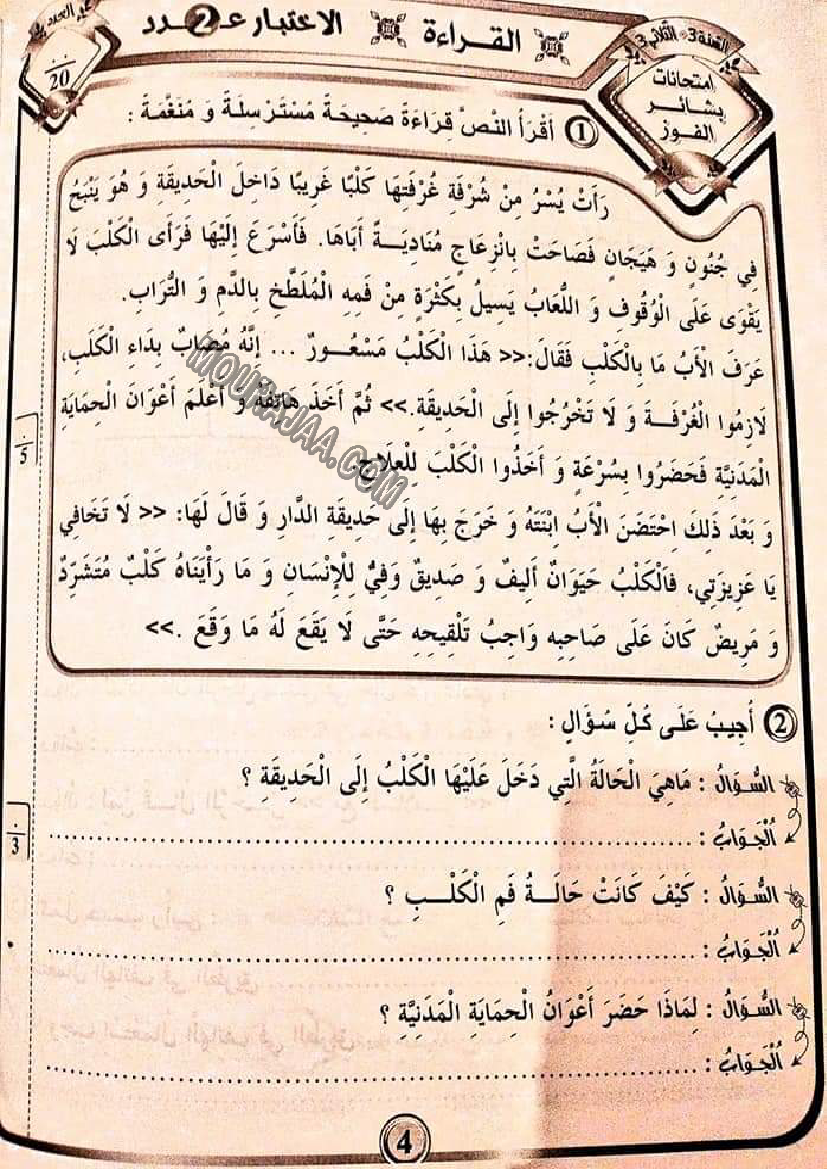 السنة 3 • الثلاثي 3
امتحانات
بشائر
الفوز
القراءة
الاختبار عـ2ـدد
العدد
20
1 أَقْرَأُ النَّصَّ قِرَاءَةً صَحِيحَةً مُسْتَرْسِلَةً وَ مُنَغَّمَةً :
رَأَتْ يُسْرُ مِنْ شُرْفَةِ غُرْفَتِهَا كَلْبًا غَرِيبًا دَاخِلَ الْحَدِيقَةِ وَ هُوَ يَنْبَحُ
فِي جُنُونٍ وَ هَيَجَانٍ فَصَاحَتْ بِانْزِعَاجٍ مُنَادِيَةً أَبَاهَا. فَأَسْرَعَ إِلَيْهَا فَرَأَى الْكَلْبَ لَا
يَقْوَى عَلَى الْوُقُوفِ وَ اللُّعَابُ يَسِيلُ بِكَثْرَةٍ مِنْ فَمِهِ الْمُلَطَّخِ بِالدَّمِ وَ التُّرَابِ.
عَرَفَ الْأَبُ مَا بِالْكَلْبِ فَقَالَ:<< هَذَا الْكَلْبُ مَسْعُورٌ ... إِنَّهُ مُصَابٌ بِدَاءِ الْكَلَبِ،
لَازِمُوا الْغُرْفَةَ وَ لَا تَخْرُجُوا إِلَى الْحَدِيقَةِ.>> ثُمَّ أَخَذَ هَاتِفَهُ وَ أَعْلَمَ أَعْوَانَ الْحِمَايَةِ
الْمَدَنِيَّةِ فَحَضَرُوا بِسُرْعَةٍ وَ أَخَذُوا الْكَلْبَ لِلْعِلَاجِ.
وَ بَعْدَ ذَلِكَ اِحْتَضَنَ الْأَبُ اِبْنَتَهُ وَ خَرَجَ بِهَا إِلَى حَدِيقَةِ الدَّارِ وَ قَالَ لَهَا: << لَا تَخَافِي
يَا عَزِيزَتِي، فَالْكَلْبُ حَيَوَانٌ أَلِيفٌ وَ صَدِيقٌ وَفِيٌّ لِلْإِنْسَانِ وَ مَا رَأَيْنَاهُ كَلْبٌ مُتَشَرِّدٌ
وَ مَرِيضٌ كَانَ عَلَى صَاحِبِهِ وَاجِبُ تَلْقِيحِهِ حَتَّى لَا يَقَعَ لَهُ مَا وَقَعَ .>>
5
MOURAJAA.COM
2 أُجِيبُ عَلَى كُلِّ سُؤَالٍ :
السُّؤَالُ : مَاهِيَ الْحَالَةُ الَّتِي دَخَلَ عَلَيْهَا الْكَلْبُ إِلَى الْحَدِيقَةِ ؟
اُلْجَوَابُ : ........................................
3
السُّؤَالُ : كَيْفَ كَانَتْ حَالَةُ فَمِ الْكَلْبِ ؟
اُلْجَوَابُ : ........................................
السُّؤَالُ : لِمَاذَا حَضَرَ أَعْوَانُ الْحِمَايَةِ الْمَدَنِيَّةِ ؟
اُلْجَوَابُ : ........................................
4